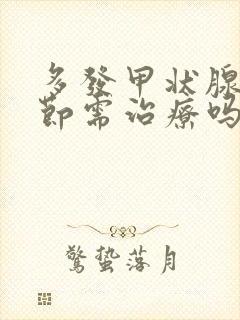 多發甲状腺
節需治療吗
驚蟄落月